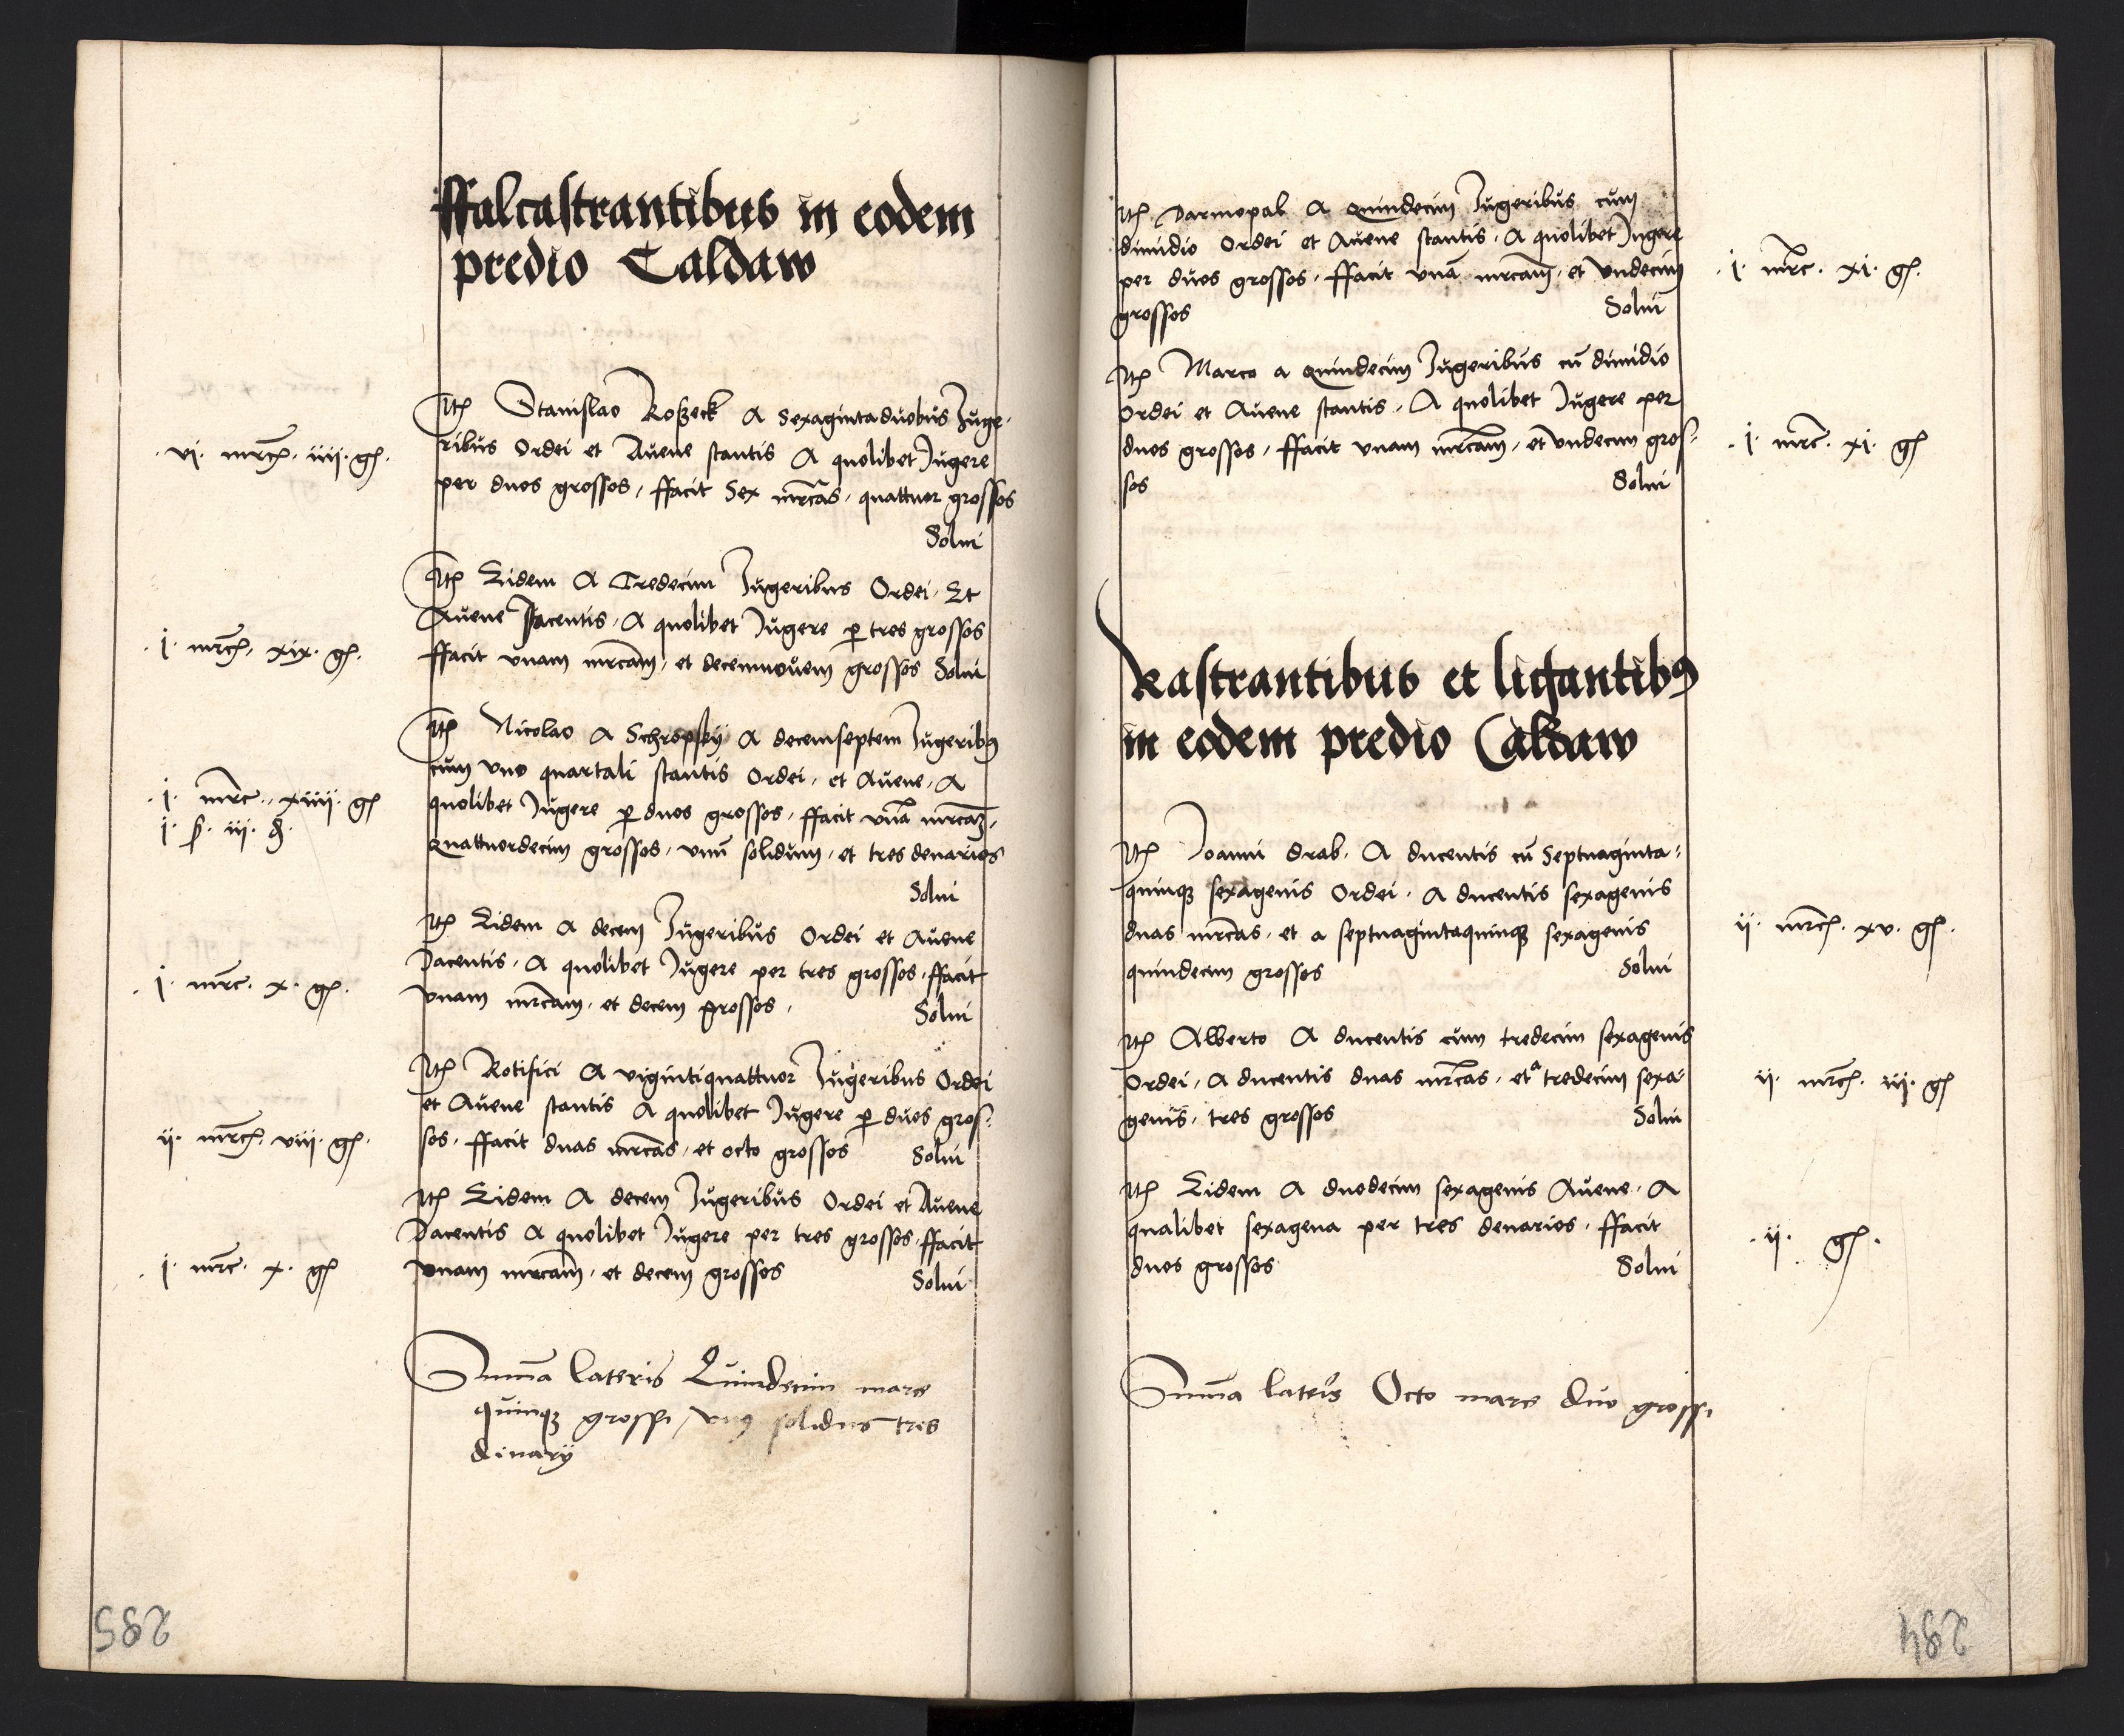 ffalcastrantibus in eodem
predio Caldaw
Itm Stanislao Roszeck A Sexagintaduobus Juge-
ribus Ordei et Avene stantis A quolibet Jugere
per duos grossos, ffacit Sex mrcas, quattuor grossos
Solui
.vi. mrc. iiii. gr.
Itm Eidem A Tredecim Jugeribus Ordei. Et
Avene Jacentis, A quolibet Jugere p tres grossos
ffacit vnam mrcam, et decemnouem grossos Solui
.j. mrc. xix. gr.
Itm Nicolao A Schropsky A decemseptem Jugeribus
cum vno quartali stantis Ordei, et Avene, A
quolibet Jugere p duos grossos, ffacit vna mrcam,
Quattuordecim grossos, vnu solidum, et tres denarios
Solui
.j. mrc. xiiii. gr
j. s. iij. d.
Itm Eidem A decem Jugeribus Ordei et Avene
Jacentis, A quolibet Jugere per tres grossos, ffacit
vnam mrcam, et decem grossos, Solui
.j. mrc. x. gr.
Itm Rotifici A vigintiquattuor Jugeribus Ordei
et Avene stantis A quolibet Jugere p duos gros-
sos, ffacit duas mrcas, et octo grossos Solui
ij. mrc. viii. gr.
Itm Eidem A decem Jugeribus Ordei et Avene
Jacentis A quolibet Jugere per tres grossos, ffacit
vnam mrcam, et decem grossos Solui
.j. mrc. x. gr
Suma lateris Quindecim marc
quinqz grossi, vn9 solidus tres
dinarij
285
Itm Jarmopal A Quindecim Jugeribus cum
dimidio Ordei et Avene stantis, A quolibet Jugere
per duos grossos, ffacit vna mrcam, et Vndecim
grossos Solui
.j. mrc. xi. gr.
Itm Marco a Quindecim Jugeribus cu dimidio
Ordei et Avene stantis, A quolibet Jugere per
duos grossos, ffacit vnam mrcam, et Vndecim gros-
sos Solui
.j. mrc. xi. gr
Rastrantibus et ligantib9
in eodem predio Caldaw
Itm Joanni drab, A ducentis cu Septuaginta-
quinqz sexagenis Ordei, A ducentis sexagenis
duas mrcas, et a septuagintaquinqz sexagenis
quindecim grossos Solui
ij. mrc. xv. gr.
Itm Alberto A ducentis cum tredecim sexagenis
Ordei, A ducentis duas mrcas, et a tredecim sexa-
genis, tres grossos Solui
ij. mrc. iij. gr
Itm Eidem A duodecim sexagenis Avene, A
qualibet sexagena per tres denarios, ffacit
duos grossos Solui
.ij. gr.
Suma lateris Octo marc duo grossi
284